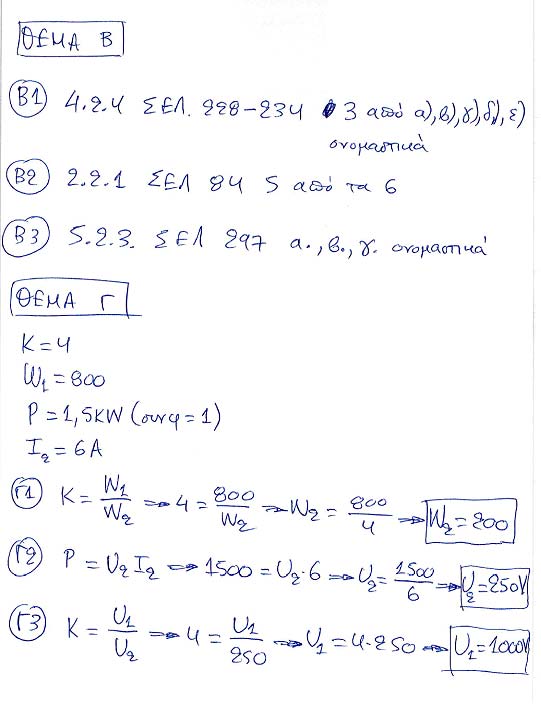 ΘΕΜΑ Β
Β1 4.2.4 ΣΕΛ. 228-234 3 από α), β), γ), δ), ε)
ονομαστικά
Β2 2.2.1 ΣΕΛ 84 5 από τα 6
Β3 5.2.3. ΣΕΛ 297 α., β., γ. ονομαστικά
ΘΕΜΑ Γ
K = 4
W₁ = 800
P = 1,5KW (συνφ = 1)
I₂ = 6A
Γ1 K = W₁/W₂ → 4 = 800/W₂ → W₂ = 800/4 → W₂ = 200
Γ2 P = U₂ I₂ → 1500 = U₂·6 → U₂ = 1500/6 → U₂ = 250V
Γ3 K = U₁/U₂ → 4 = U₁/250 → U₁ = 4·250 → U₁ = 1000V